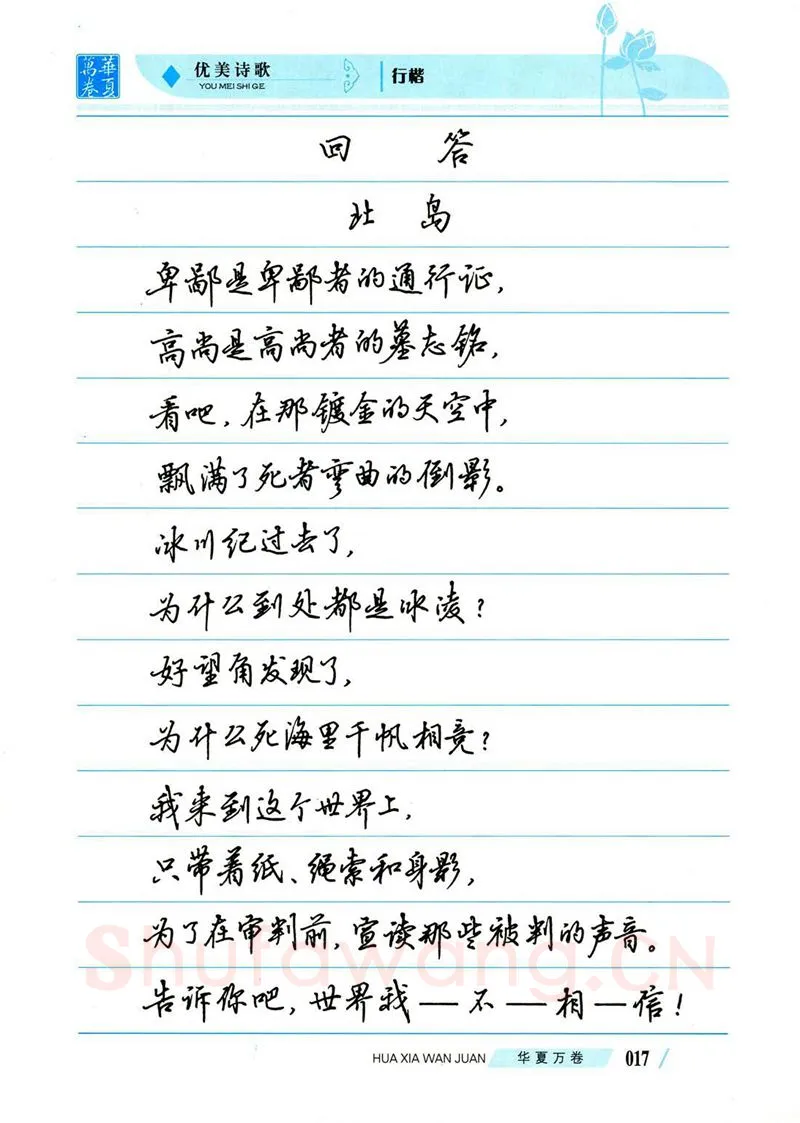 華夏萬卷
优美诗歌
YOU MEI SHI GE
行楷
回 答
北 岛
卑鄙是卑鄙者的通行证,
高尚是高尚者的墓志铭,
看吧,在那镀金的天空中,
飘满了死者弯曲的倒影。
冰川纪过去了,
为什么到处都是冰凌?
好望角发现了,
为什么死海里千帆相竞?
我来到这个世界上,
只带着纸、绳索和身影,
为了在审判前,宣读那些被判的声音。
Shufawang.CN
告诉你吧,世界我—不—相—信!
HUA XIA WAN JUAN
华夏万卷
017